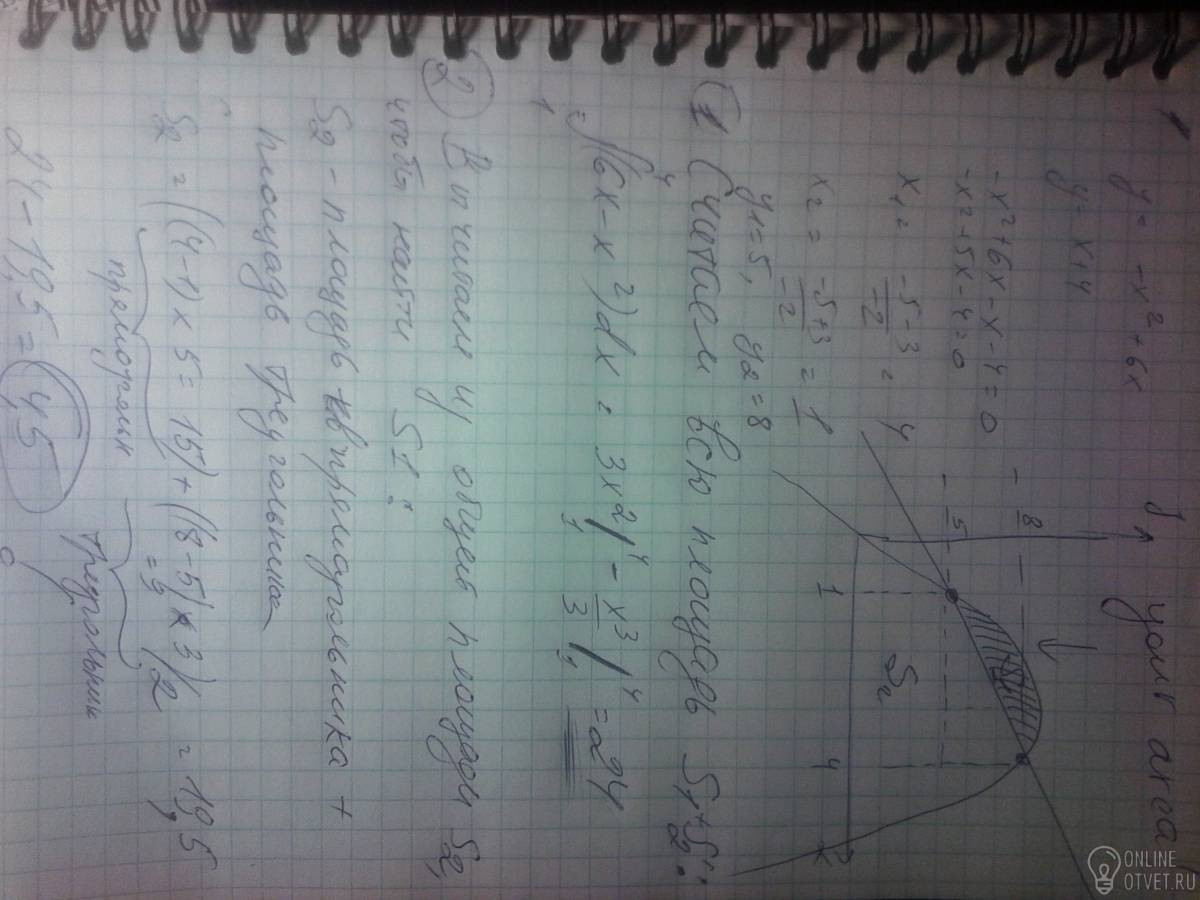 1
y = -x² + 6x
y = x+4
-x²+6x-x-4=0
-x²+5x-4=0
x₁ = -5-3/-2 = 4
x₂ = -5+3/-2 = 1
y1=5, y2=8
y
8
5
1
4
x
S₂
① Считаем всю площадь S₁+S₂:
= ∫₁⁴(6x-x²)dx = 3x²|₁⁴ - x³/3|₁⁴ = 24
② Вычитаем из общей площади S₂,
чтобы найти S1:
S₂ - площадь прямоугольника +
площадь треугольника
S₂ = ((4-1) x 5 = 15) + ((8-5) x 3)/2 = 19,5
= 4,5
прямоугольник
треугольник
24 - 19,5 = 4,5
ONLINE
OTVET.RU